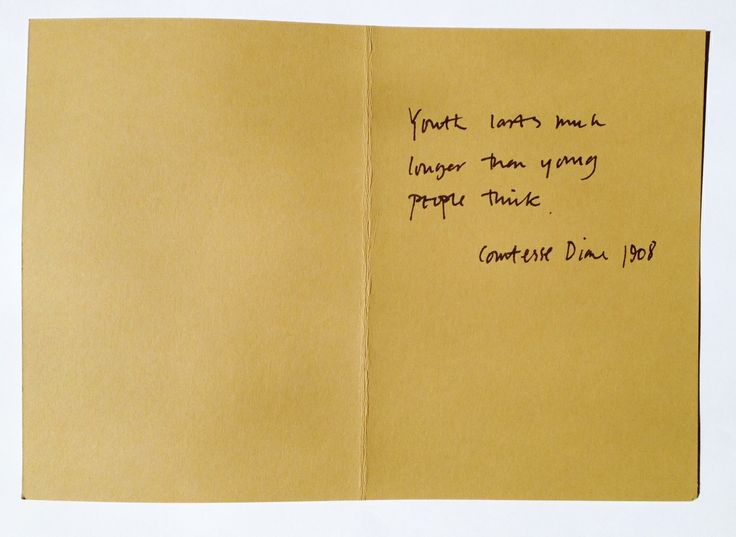 Youth lasts much
longer than young
people think.
Comtesse Diane 1908